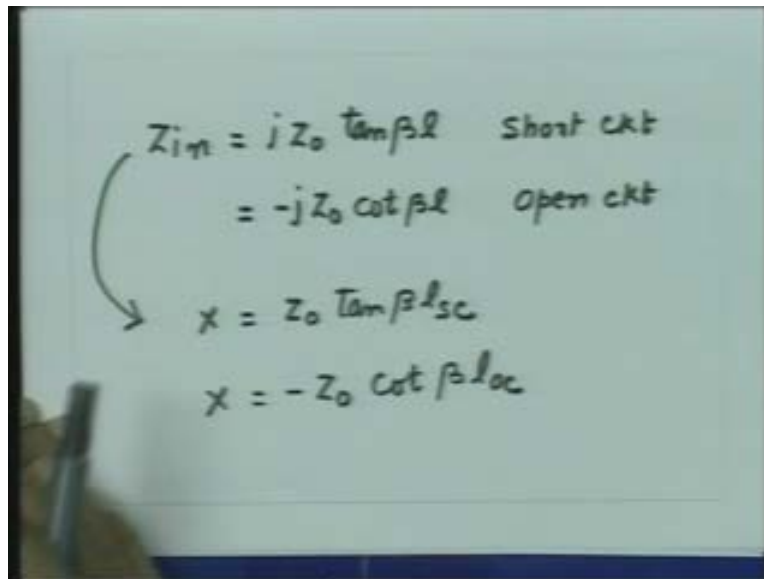 Zin = j Z₀ tanβl short ckt
= -j Z₀ cotβl open ckt
x = Z₀ Tanβlsc
x = -Z₀ cot βloc